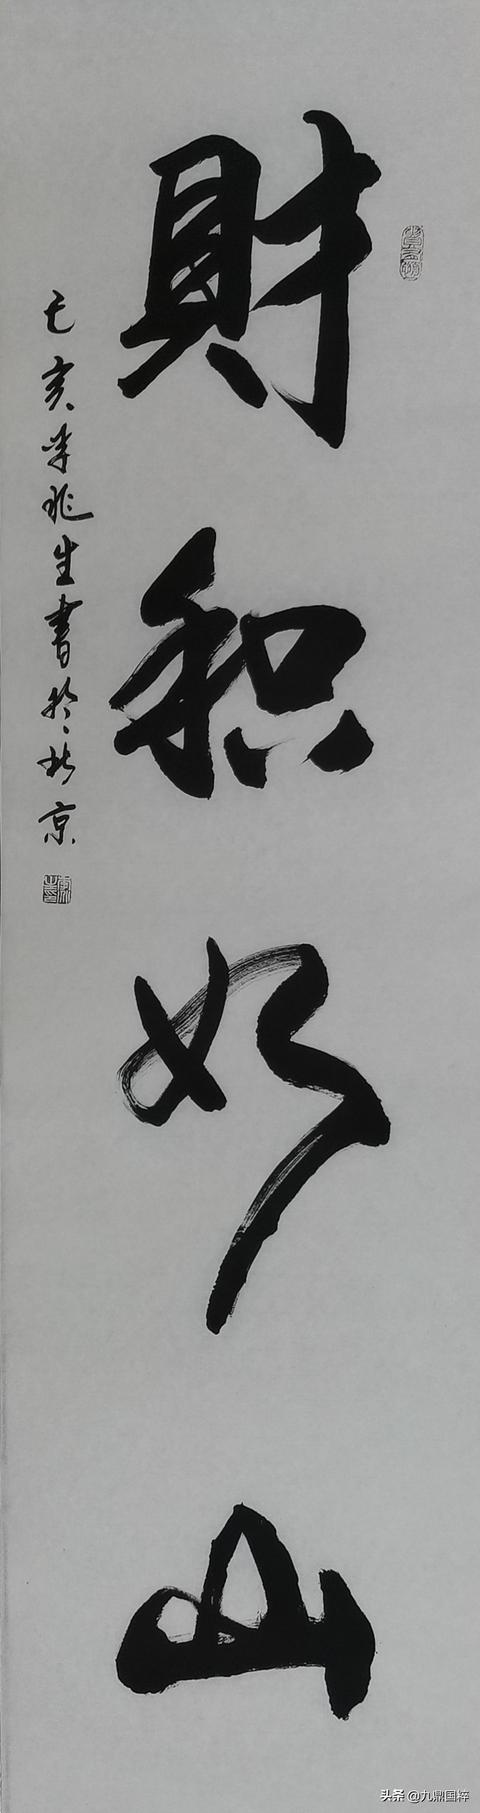 財积如山
己亥年兆生書於北京
头条 @九鼎国粹